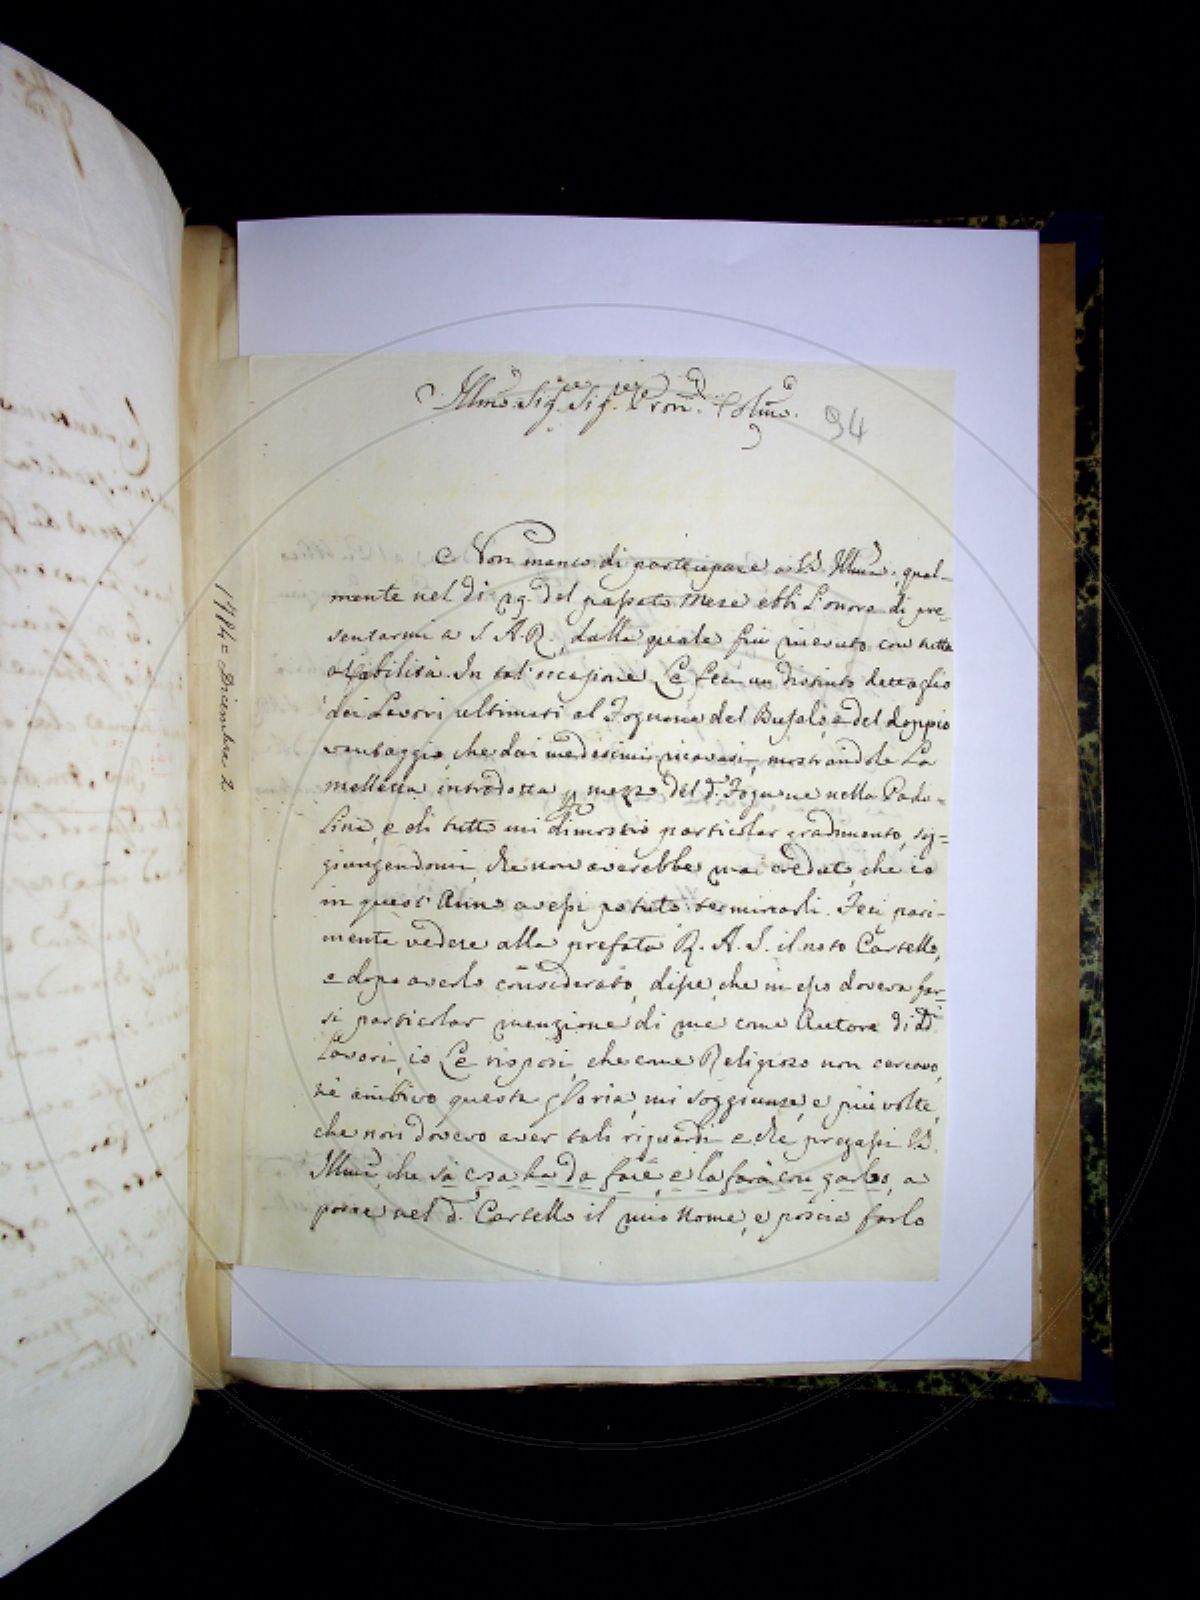 Illmo. Sig.re Sig.re Pron. Colmo.
94
Non manco di partecipare a V.S. Illma., qual-
mente nel dì 29. del passato Mese ebbi l'onore di pre-
sentarmi a S. A. R., dalla quale fui ricevuto con tutta
affabilità. In tal' occasione Le feci un distinto dettaglio
dei Lavori ultimati al Fognone del Bufalo, e del doppio
vantaggio che dai medesimi ricavasi, mostrandole La
melletta introdotta p mezzo del d.o Fognone nella Padu-
Line, e di tutto mi dimostrò particolar gradimento, sog-
giungendomi, che non averebbe mai creduto, che io
in quest' Anno avessi potuto terminarli. Feci pari-
mente vedere alla prefata R. A. S. il noto Cartello,
e dopo averlo considerato, disse, che in esso doveva far-
si particolar menzione di me come Autore di dd.i
Lavori, io Le risposi, che come Religioso non cercavo,
nè ambivo questa gloria, mi soggiunse, e più volte,
che non dovevo aver tali riguardi e che pregassi V.S.
Illma, che sà cosa ha da fare, e la farà con garbo, a
porre nel d.o Cartello il mio Nome, e poscia farlo
1784 = Dicembre 2